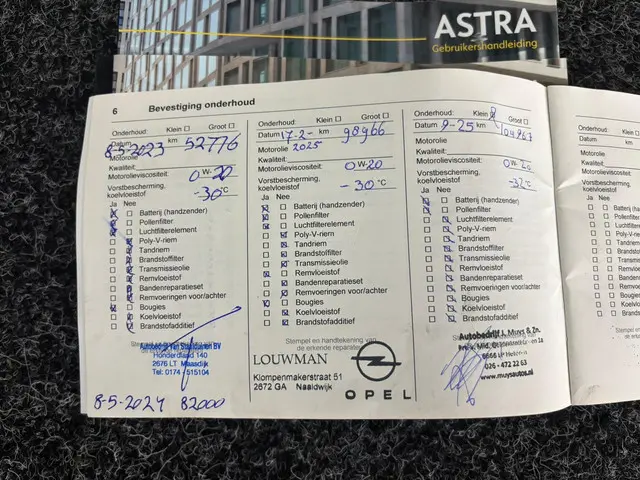 ASTRA
Gebruikershandleiding
6 Bevestiging onderhoud
Onderhoud: Klein Groot
Datum km
8-5-2023 52776
Motorolie
Kwaliteit:
Motorolieviscositeit: 0W-20
Vorstbescherming
koelvloeistof -30 °C
Ja Nee
Batterij (handzender)
Pollenfilter
Luchtfilterelement
Poly-V-riem
Tandriem
Brandstoffilter
Transmissieolie
Remvloeistof
Bandenreparatieset
Remvoeringen voor/achter
Bougies
Koelvloeistof
Brandstofadditief
2676 LT Maasdijk
Tel: 0174 - 515104
8-5-2024 82000
Onderhoud: Klein Groot
Datum 17-2- km 98966
Motorolie 2025
Kwaliteit:
Motorolieviscositeit: 0W-20
Vorstbescherming
koelvloeistof -30 °C
Ja Nee
Batterij (handzender)
Pollenfilter
Luchtfilterelement
Poly-V-riem
Tandriem
Brandstoffilter
Transmissieolie
Remvloeistof
Bandenreparatieset
Remvoeringen voor/achter
Bougies
Koelvloeistof
Brandstofadditief
Stempel en handtekening van
de erkende reparateur
LOUWMAN
Klompenmakerstraat 51
2672 GA Naaldwijk
OPEL
Onderhoud: Klein Groot
Datum 9-25 km
Motorolie
Kwaliteit:
Motorolieviscositeit: 0W
Vorstbescherming
koelvloeistof °C
Ja Nee
Batterij (handzender)
Pollenfilter
Luchtfilterelement
Poly-V-riem
Tandriem
Brandstoffilter
Transmissieolie
Remvloeistof
Bandenreparatieset
Remvoeringen voor/achter
Bougies
Koelvloeistof
Brandstofadditief
Stempel en handtekening van
Autobedrijf J. Muys & Zn.
026 - 472 22 63
www.muysautos.nl
Onderhoud:
Datum
Motorolie
Kwaliteit:
Motorolieviscositeit
Vorstbescherming
koelvloeistof
Ja Nee